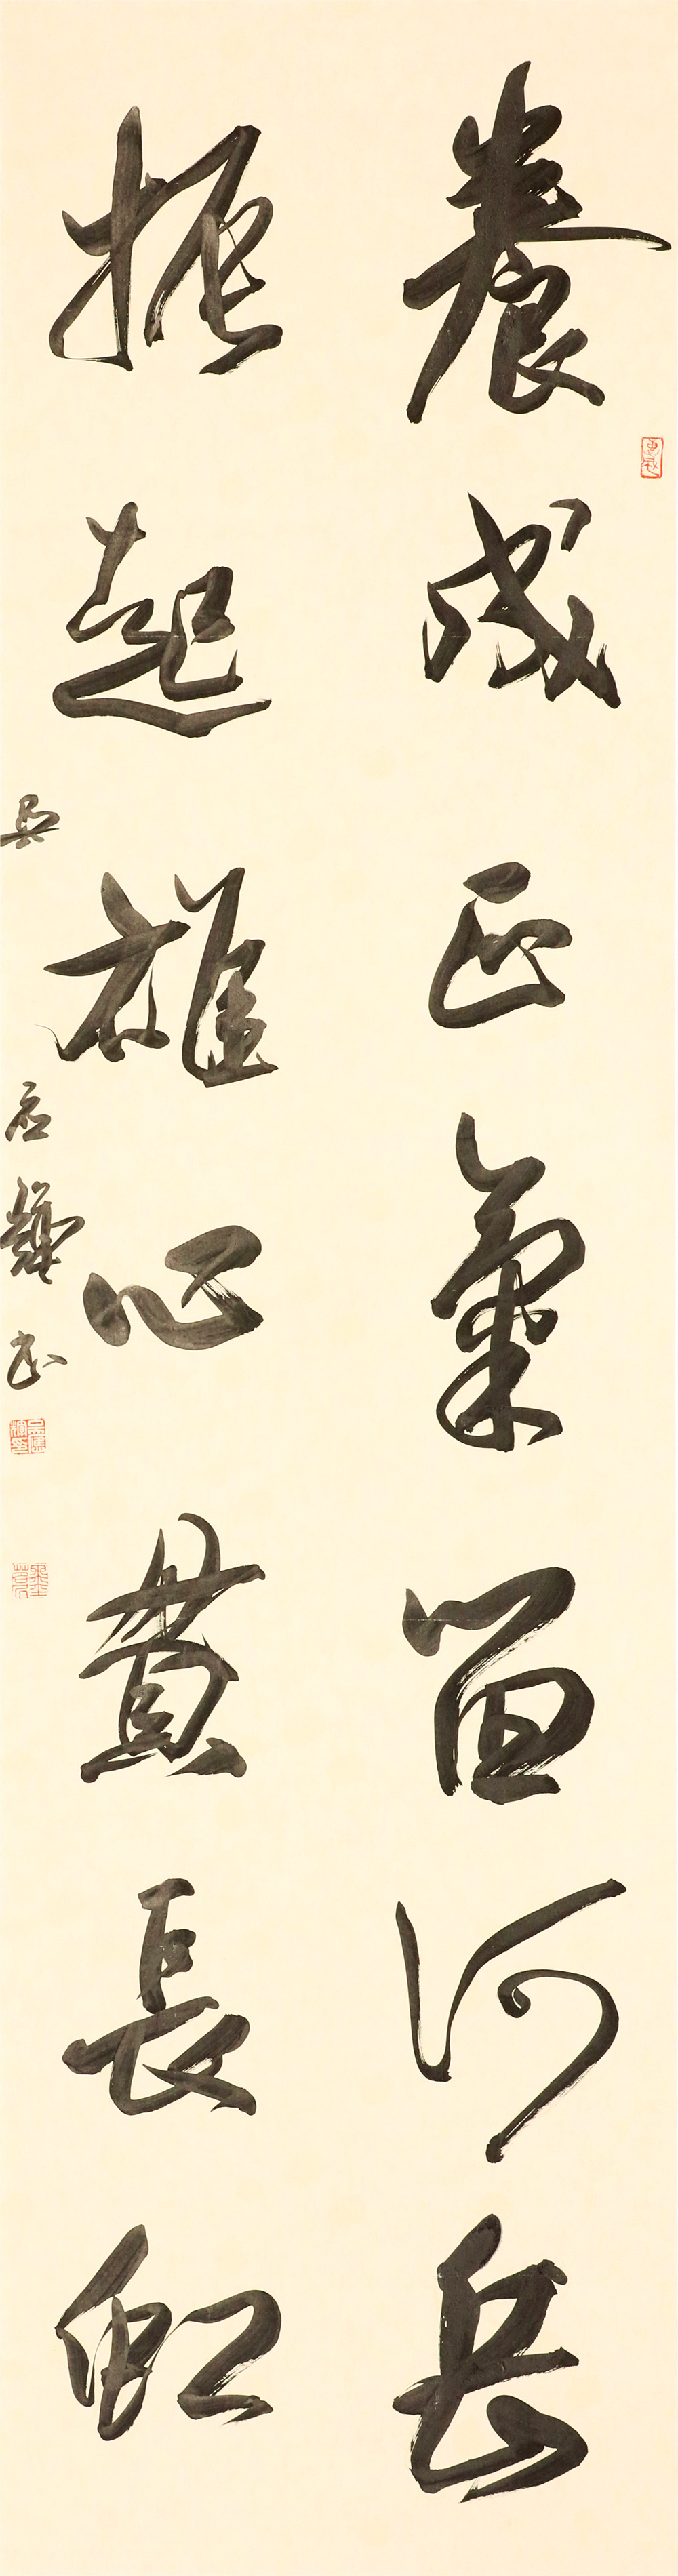 養成正氣留河岳
振起雄心貫長虹
吳應